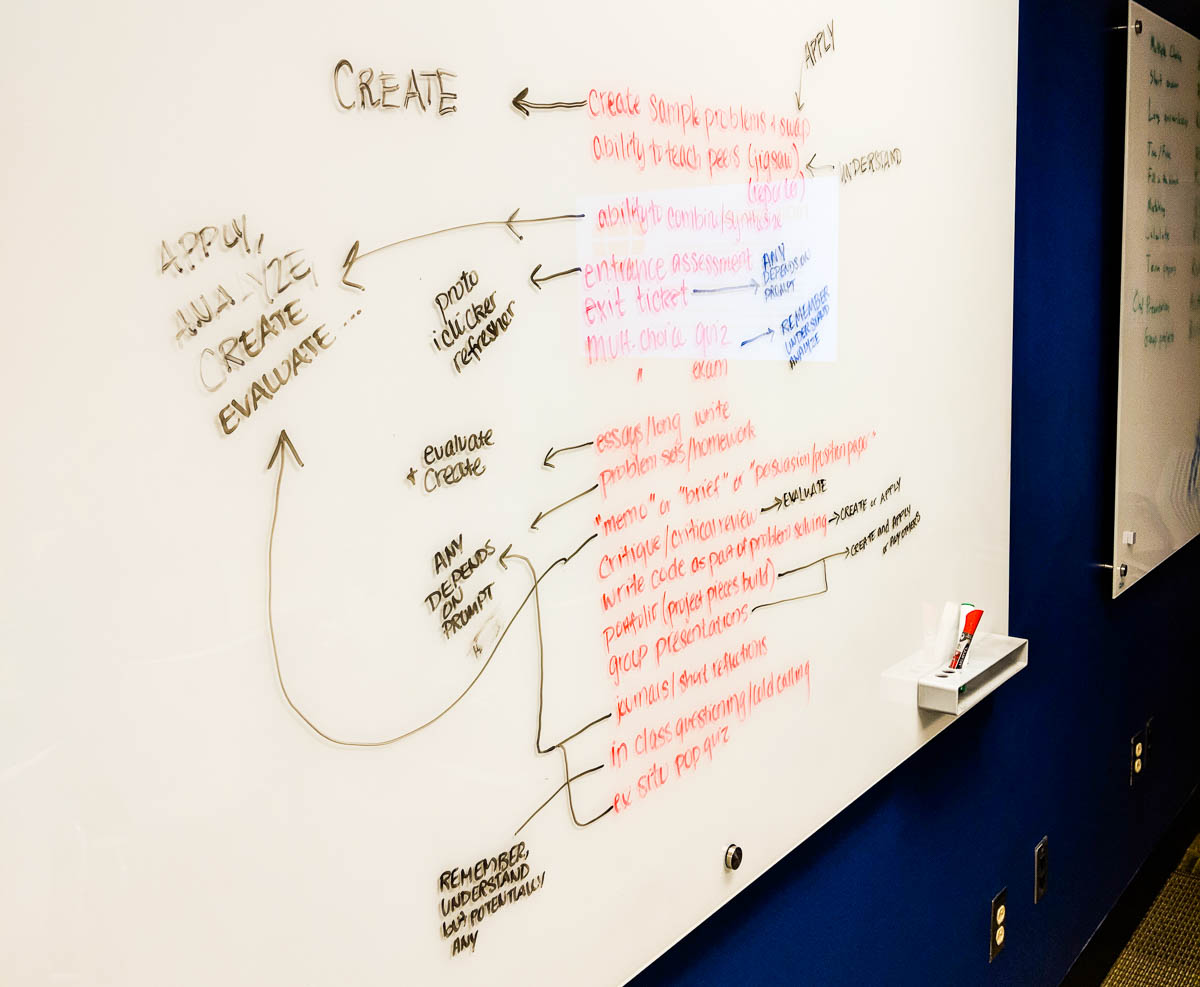 APPLY
CREATE
create sample problems + swap
ability to teach peers (jigsaw)
UNDERSTAND
ability to combine/synthesize
APPLY,
ANALYZE,
CREATE
EVALUATE....
proto
iclicker
refresher
entrance assessment
exit ticket
ANY
DEPENDS ON
PROMPT
mult-choice quiz
REMEMBER
UNDERSTAND
ANALYZE
" exam
essays/long write
+ evaluate
create
problem sets/homework
"memo" or "brief" or "persuasion/position paper"
critique/critical review
EVALUATE
write code as part of problem solving
CREATE or APPLY
portfolio (project pieces build)
CREATE and APPLY
or ANY OTHERS
group presentations
ANY
DEPENDS
ON
PROMPT
journals/short reflections
in class questioning/cold calling
ex situ pop quiz
REMEMBER,
UNDERSTAND
but POTENTIALLY
ANY
Multiple Choice
Short answer
True/False
Fill in the blank
Matching
Calculate
Term papers
Oral Presentation
Group projects